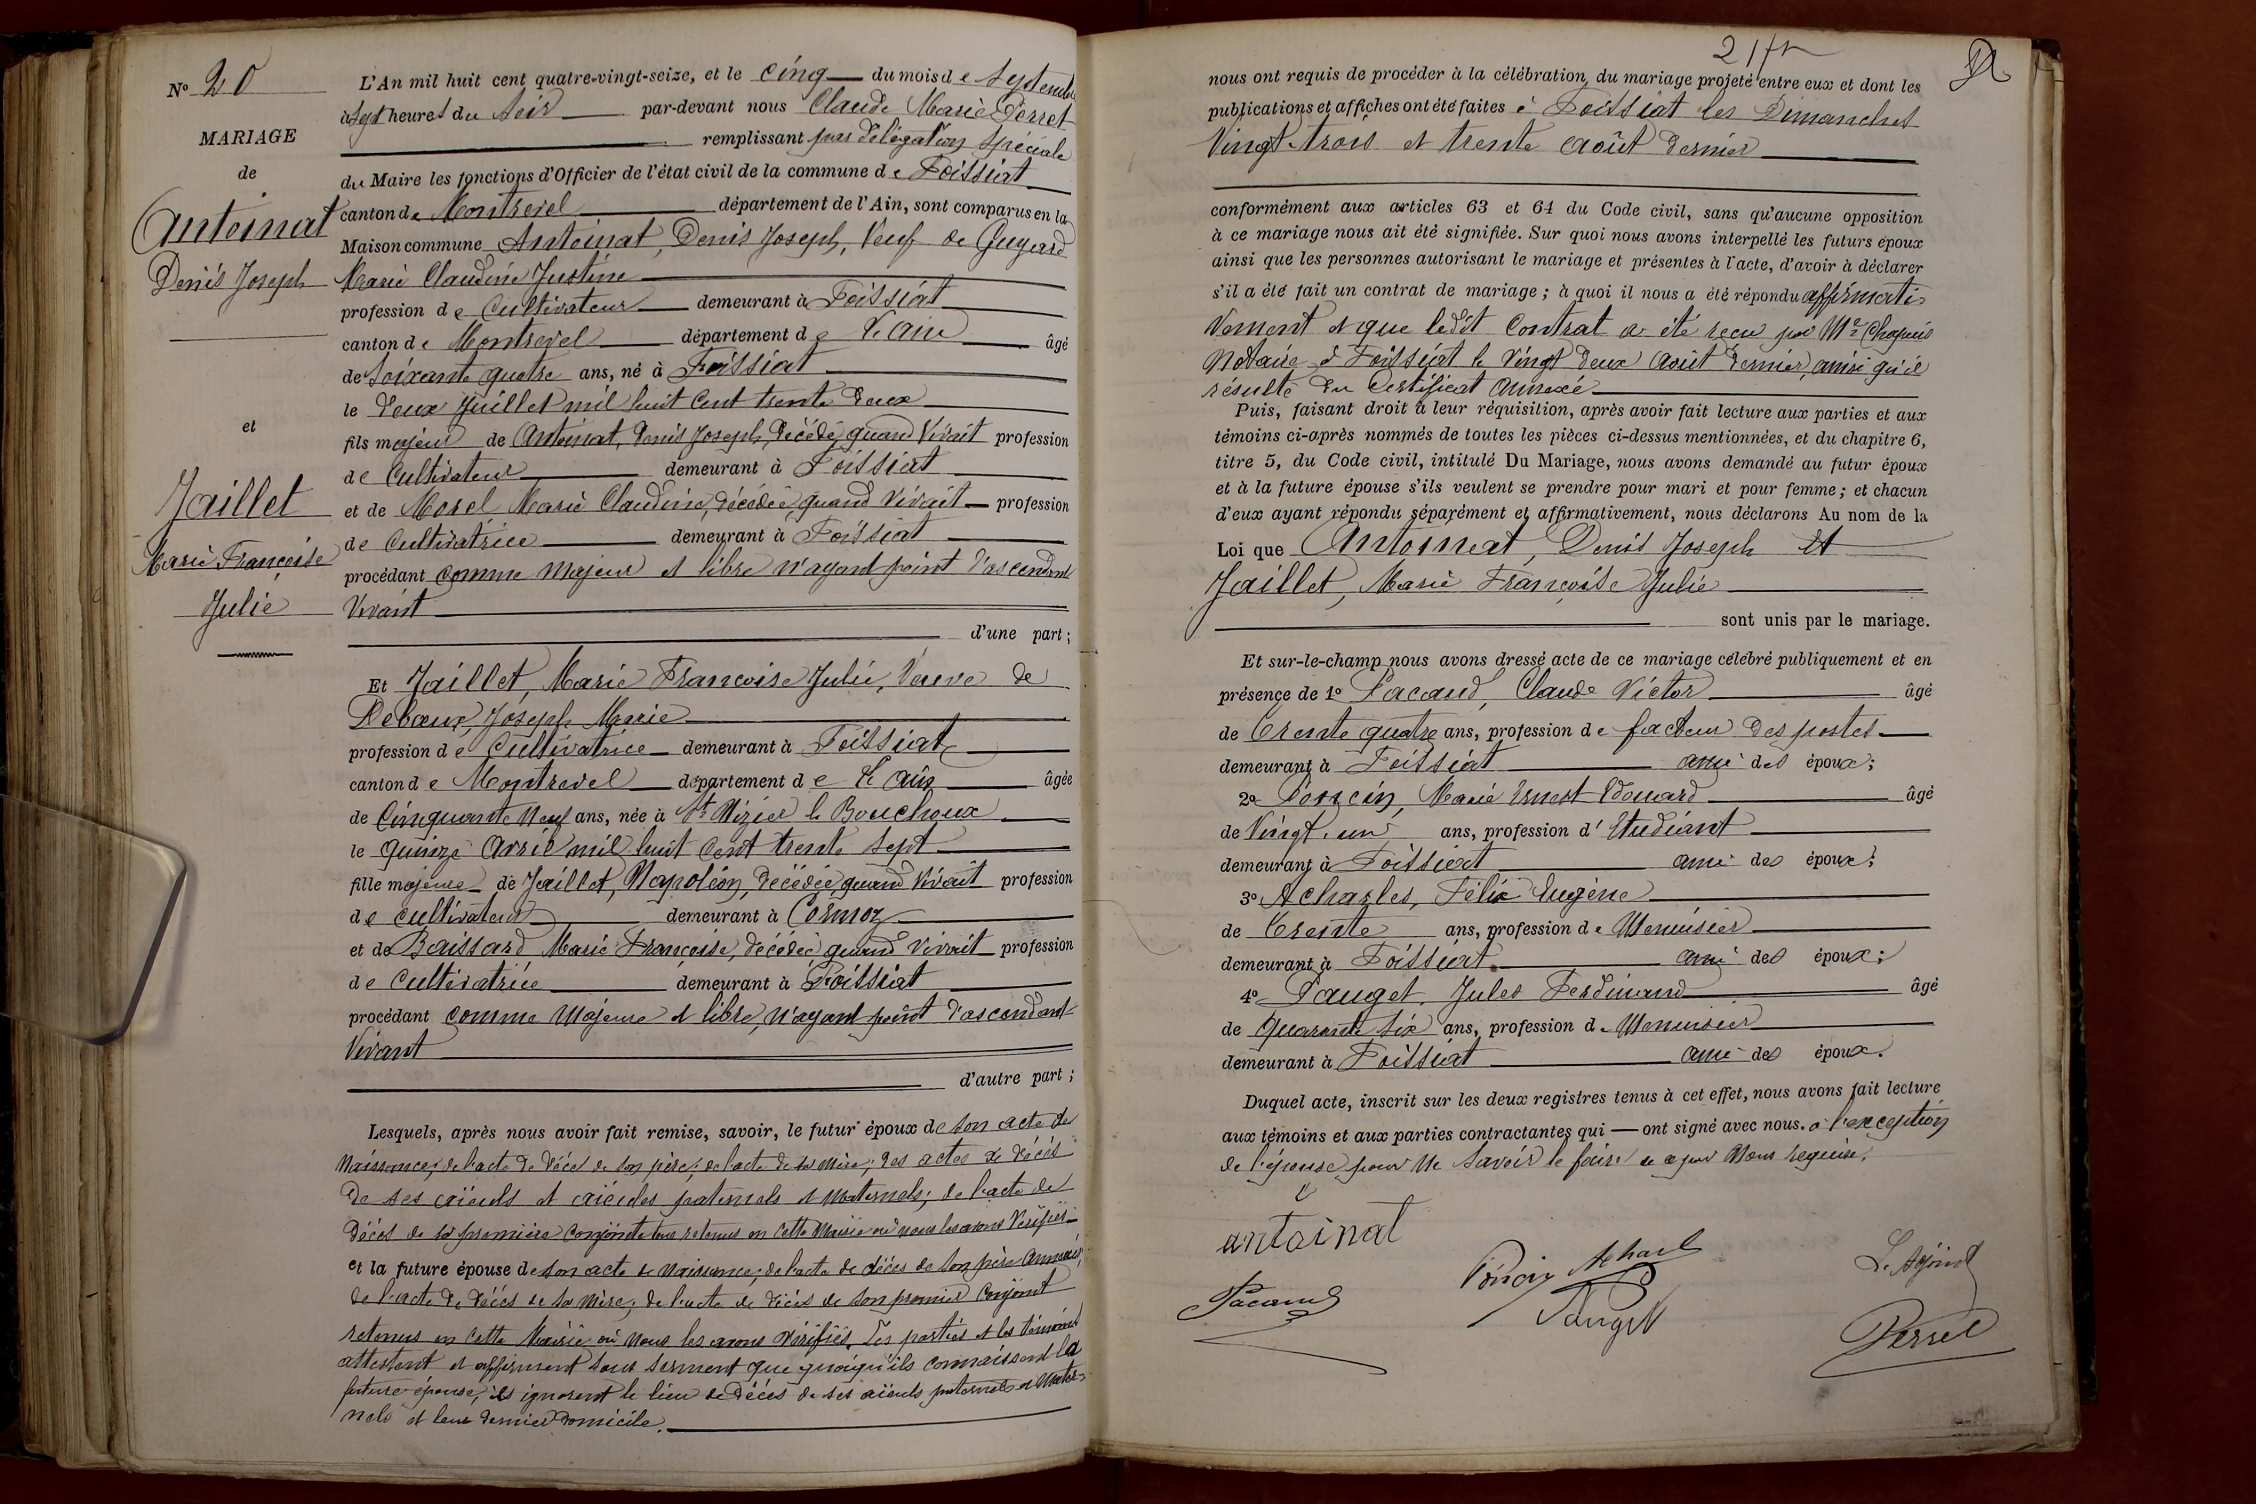 N° 20
MARIAGE
de
Antoinat
Denis Joseph
et
Jaillet
Marie Françoise
Julie
L'An mil huit cent quatre-vingt-seize, et le cinq du mois de Septembre
à sept heures du Soir par-devant nous Claude Marie Perret
remplissant par délégation spéciale
du Maire les fonctions d'Officier de l'état civil de la commune de Foissiat
canton de Montrevel département de l'Ain, sont comparus en la
Maison commune Antoinat, Denis Joseph, Veuf de Guyard
Marie Claudine Justine
profession de Cultivateur demeurant à Foissiat
canton de Montrevel département de l'Ain âgé
de Soixante quatre ans, né à Foissiat
le deux Juillet mil huit cent trente deux
fils majeur de Antoinat, Denis Joseph, décédé, quand vivait profession
de Cultivateur demeurant à Foissiat
et de Morel Marie Claudine, décédée, quand vivait profession
de Cultivatrice demeurant à Foissiat
procédant comme majeur et libre n'ayant point d'ascendant
Vivant
d'une part;
Et Jaillet, Marie Françoise Julie, Veuve de
Debœuf, Joseph Marie
profession de Cultivatrice demeurant à Foissiat
canton de Montrevel département de l'Ain âgée
de Cinquante Neuf ans, née à St Nizier le Bouchoux
le quinze Avril mil huit cent trente sept
fille majeure de Jaillet, Napoléon, décédée, quand vivait profession
de cultivateur demeurant à Cormoz
et de Boissard Marie Françoise, décédée quand vivait profession
de Cultivatrice demeurant à Foissiat
procédant comme Majeure et libre, n'ayant point d'ascendant
Vivant
d'autre part;
Lesquels, après nous avoir fait remise, savoir, le futur époux de son acte de
Naissance; de l'acte de décès de son père; de l'acte de sa mère; des actes de décès
de ses aïeuls et aïeules paternels et maternels; de l'acte de
décès de sa première conjointe tous retenus en cette Mairie où nous les avons Vérifiés
et la future épouse de son acte de Naissance; de l'acte de décès de son père annexés;
de l'acte de décès de sa Mère; de l'acte de décès de son premier Conjoint
retenus en cette Mairie où nous les avons vérifiés. Les parties et les témoins
attestent et affirment sous serment que quoiqu'ils connaissent la
future épouse, ils ignorent le lieu de décès de ses aïeuls paternels et mater-
nels et leur dernier domicile.
nous ont requis de procéder à la célébration du mariage projeté entre eux et dont les
publications et affiches ont été faites à Foissiat les Dimanches
Vingt-trois et trente août dernier
conformément aux articles 63 et 64 du Code civil, sans qu'aucune opposition
à ce mariage nous ait été signifiée. Sur quoi nous avons interpellé les futurs époux
ainsi que les personnes autorisant le mariage et présentes à l'acte, d'avoir à déclarer
s'il a été fait un contrat de mariage; à quoi il nous a été répondu affirmati-
Vement et que ledit Contrat a été reçu par Me Chapuis
Notaire à Foissiat le Vingt deux Août dernier, ainsi qu'il
résulte du Certificat annexé
Puis, faisant droit à leur réquisition, après avoir fait lecture aux parties et aux
témoins ci-après nommés de toutes les pièces ci-dessus mentionnées, et du chapitre 6,
titre 5, du Code civil, intitulé Du Mariage, nous avons demandé au futur époux
et à la future épouse s'ils veulent se prendre pour mari et pour femme; et chacun
d'eux ayant répondu séparément et affirmativement, nous déclarons Au nom de la
Loi que Antoinat, Denis Joseph et
Jaillet, Marie Françoise Julie
sont unis par le mariage.
Et sur-le-champ nous avons dressé acte de ce mariage célébré publiquement et en
présence de 1° Pacaud, Claude Victor âgé
de trente quatre ans, profession de facteur des postes
demeurant à Foissiat ami des époux;
2° Poncin, Marie Ernest Edouard âgé
de Vingt-un ans, profession d'Etudiant
demeurant à Foissiat ami des époux;
3° Acharles, Félix Eugène
de trente ans, profession de Menuisier
demeurant à Foissiat ami des époux;
4° Pauget, Jules Ferdinand âgé
de quarante six ans, profession de Menuisier
demeurant à Foissiat ami des époux.
Duquel acte, inscrit sur les deux registres tenus à cet effet, nous avons fait lecture
aux témoins et aux parties contractantes qui ont signé avec nous. à l'exception
de l'épouse pour ne savoir le faire de ce par Nous requise.
antoinat
Poncin Acharles
L'Adjoint
Pacaud
Pauget
Perret